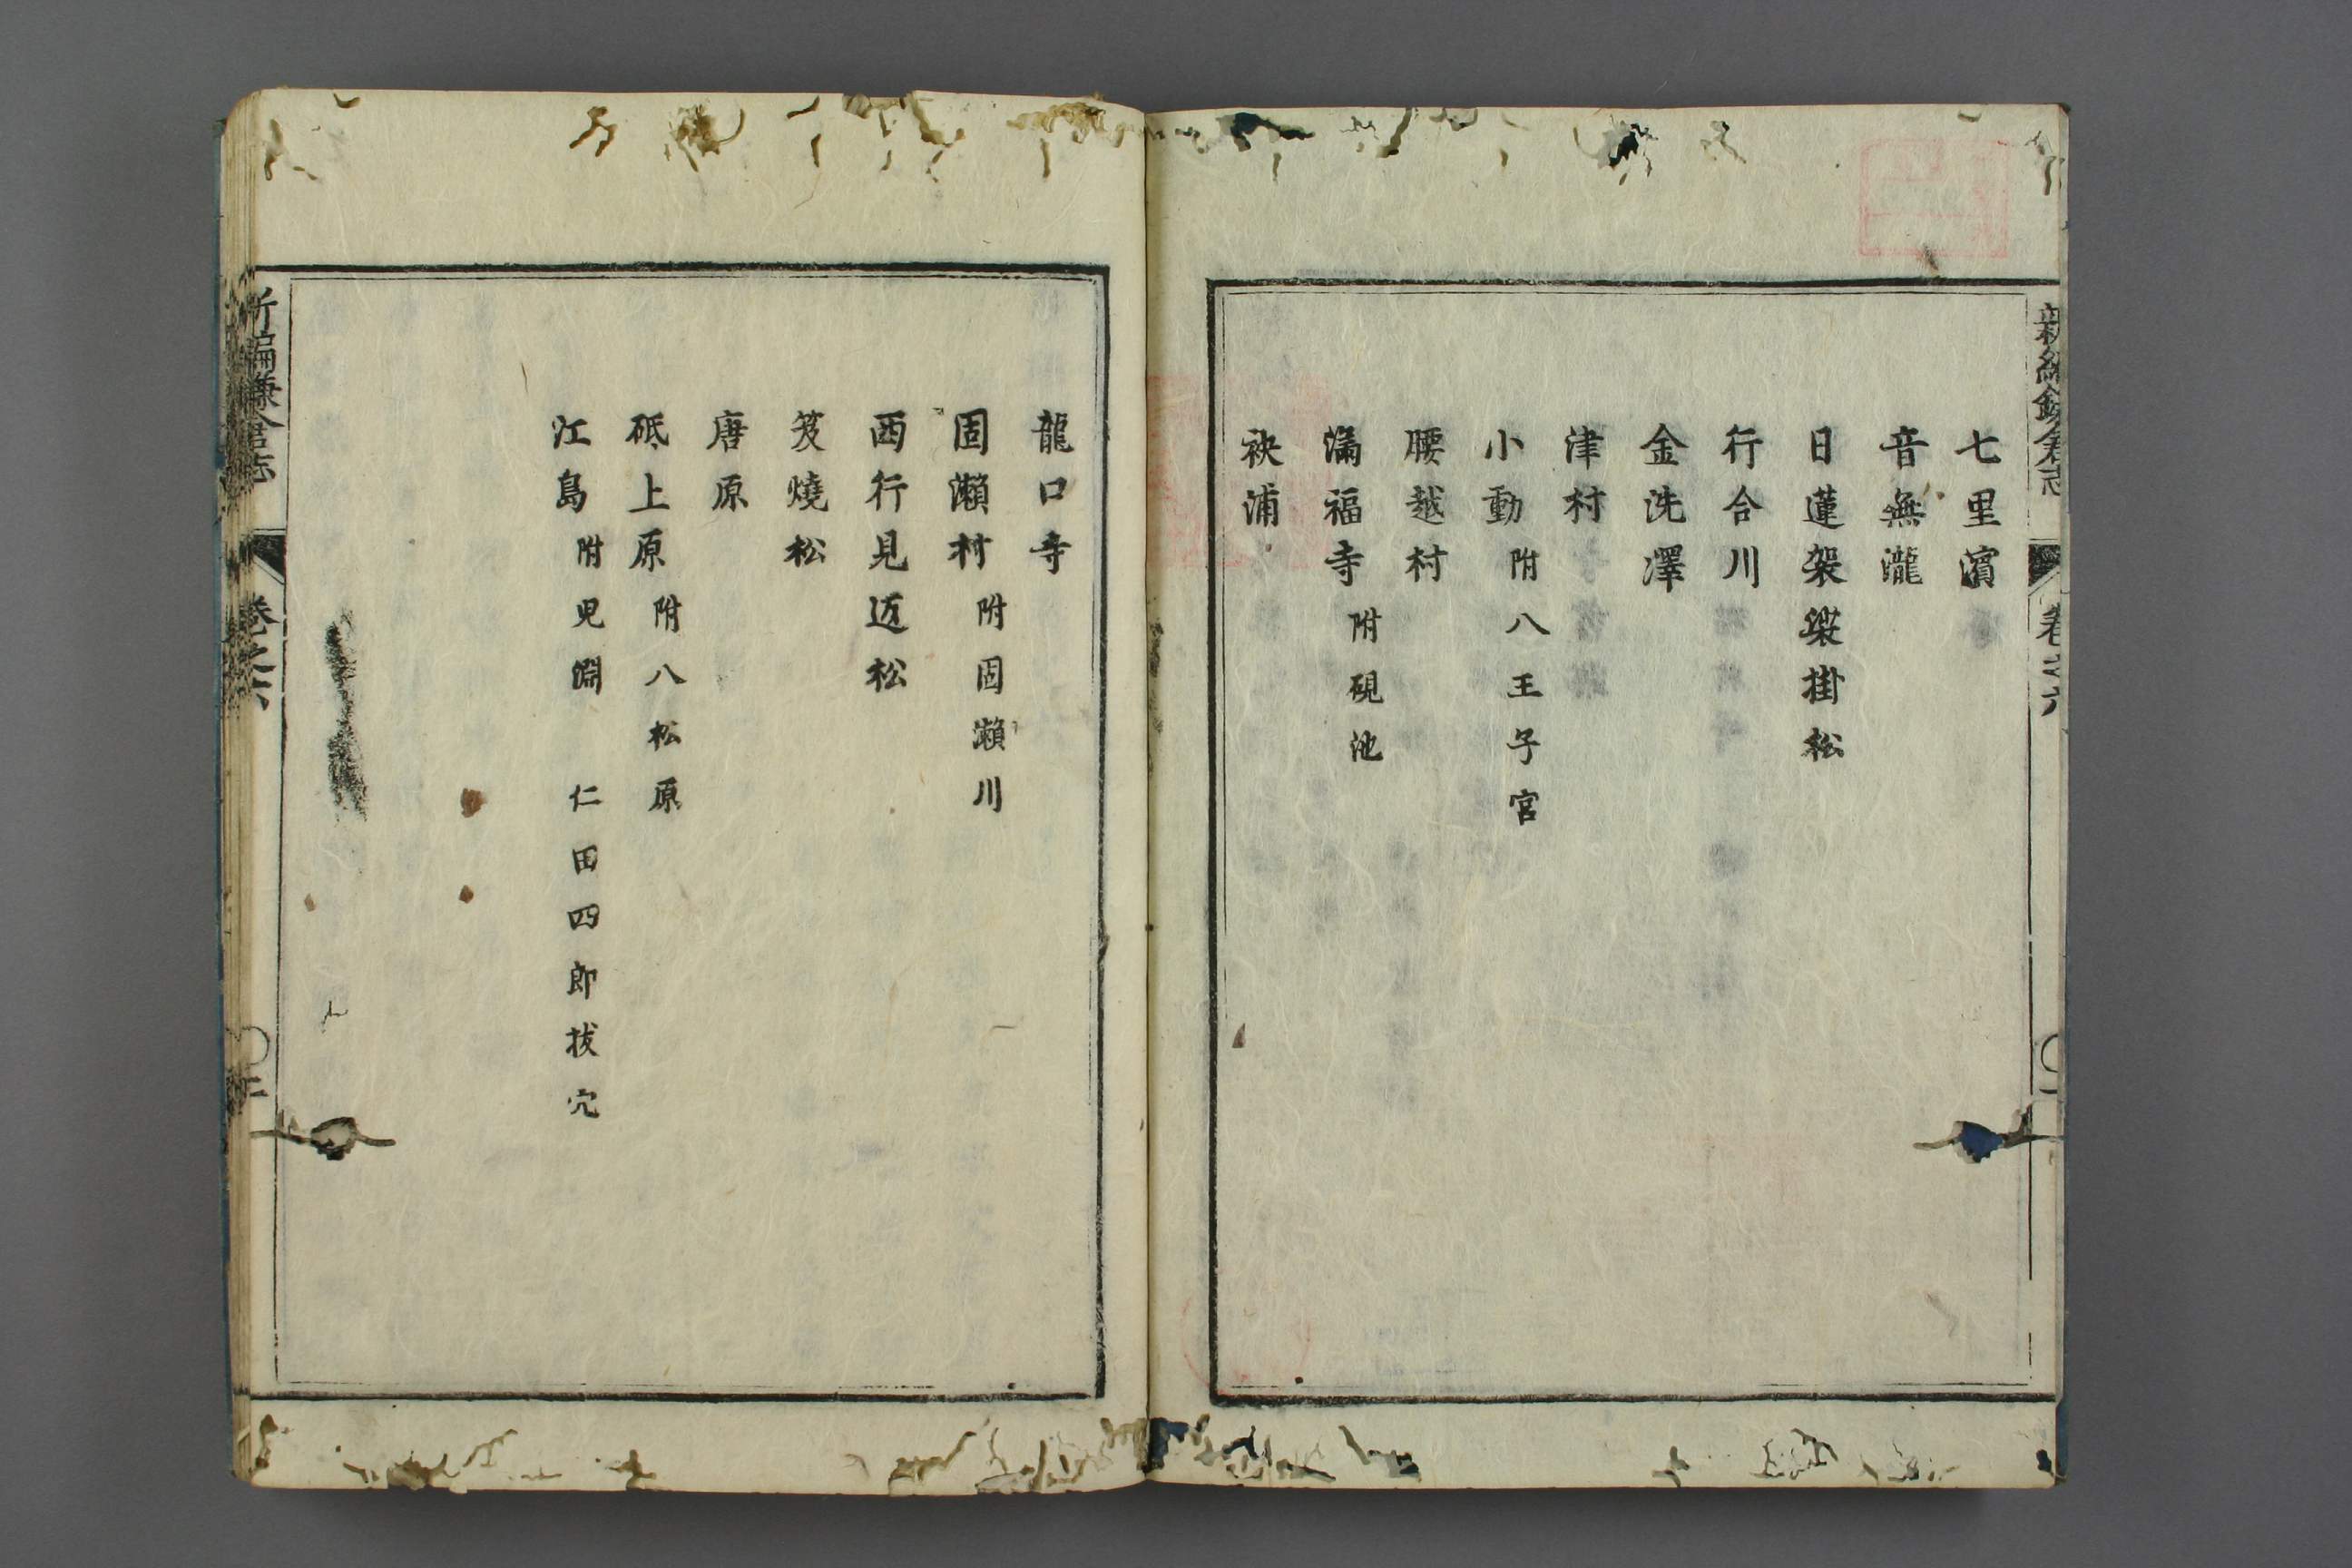 新編鎌倉志 卷之六 〇一
七里濱
音無瀧
日蓮袈裟掛松
行合川
金洗澤
津村
小動 附八王子宮
腰越村
滿福寺 附硯池
袂浦
龍口寺
固瀬村 附固瀬川
西行見返松
笈燒松
唐原
砥上原 附八松原
江島 附児淵 仁田四郎拔穴
新編鎌倉志 卷之六 〇二